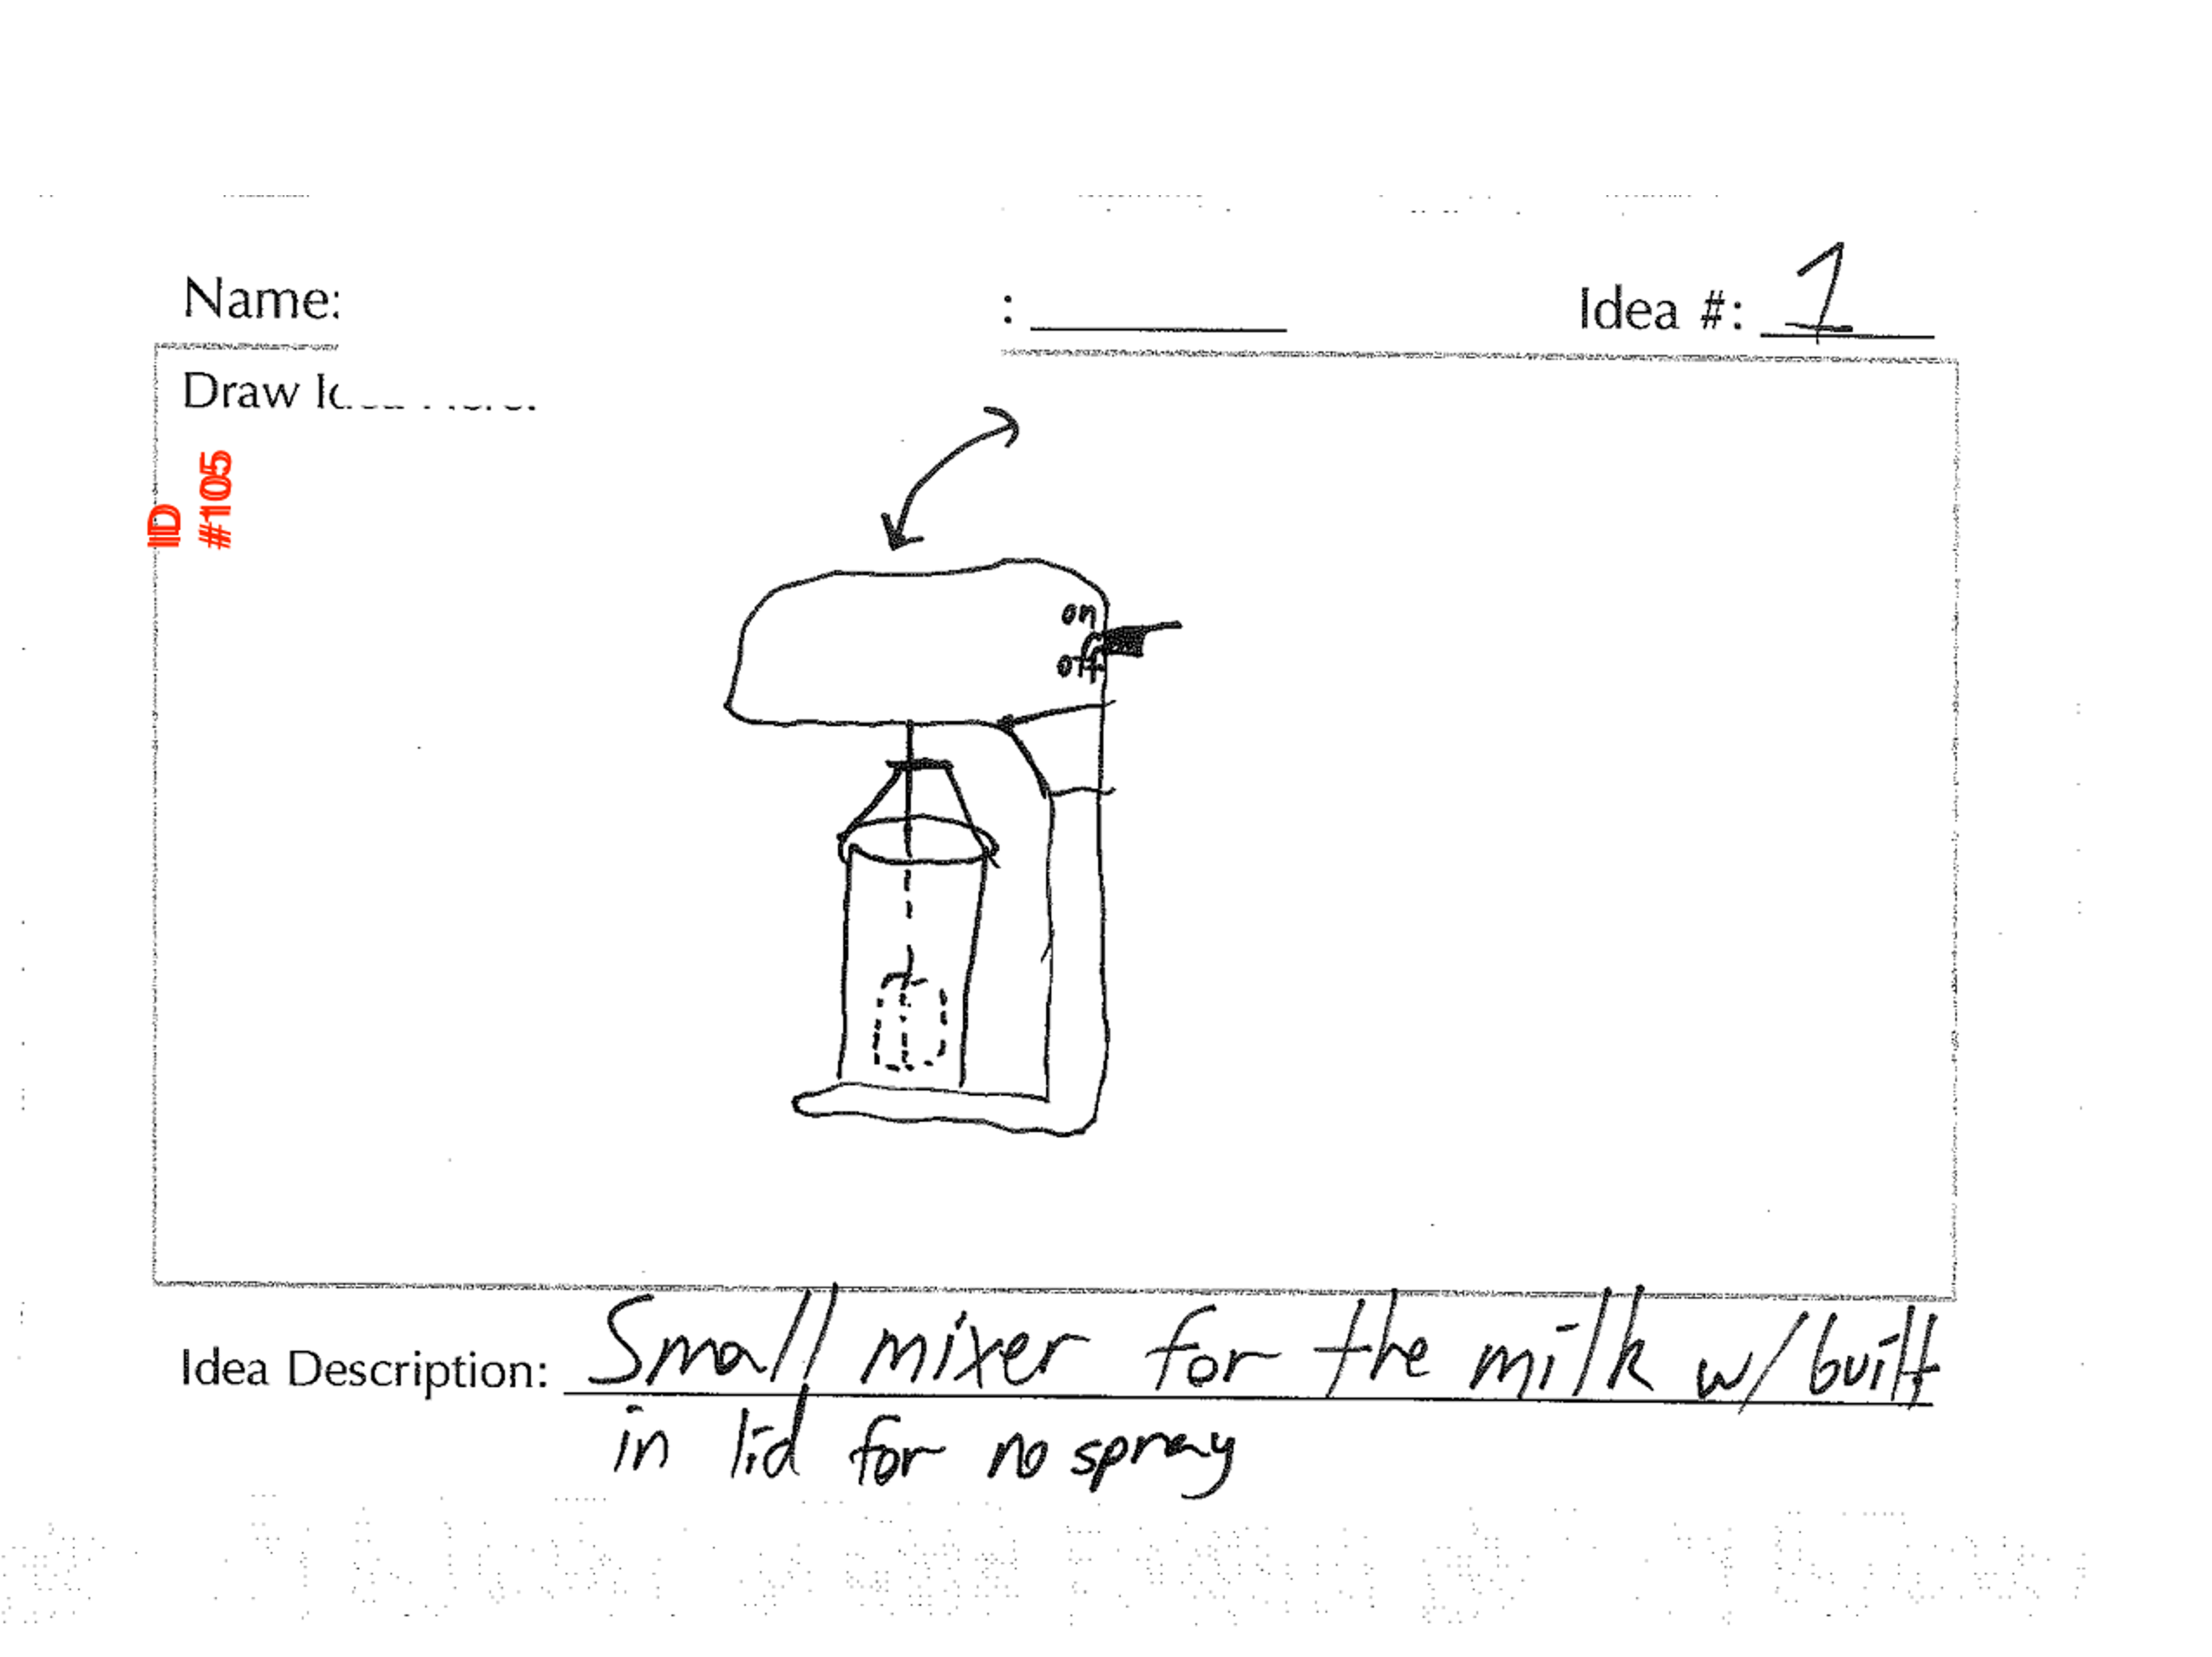 Name:
:
Idea #: 1
Draw
IID
#1105
on
off
Idea Description: Small mixer for the milk w/ built
in lid for no spray